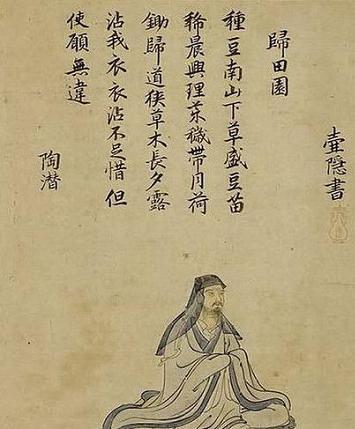 壺隱書
歸田園
種豆南山下草盛豆苗
稀晨興理荒穢帶月荷
鋤歸道狹草木長夕露
沾我衣衣沾不足惜但
使願無違
陶潜